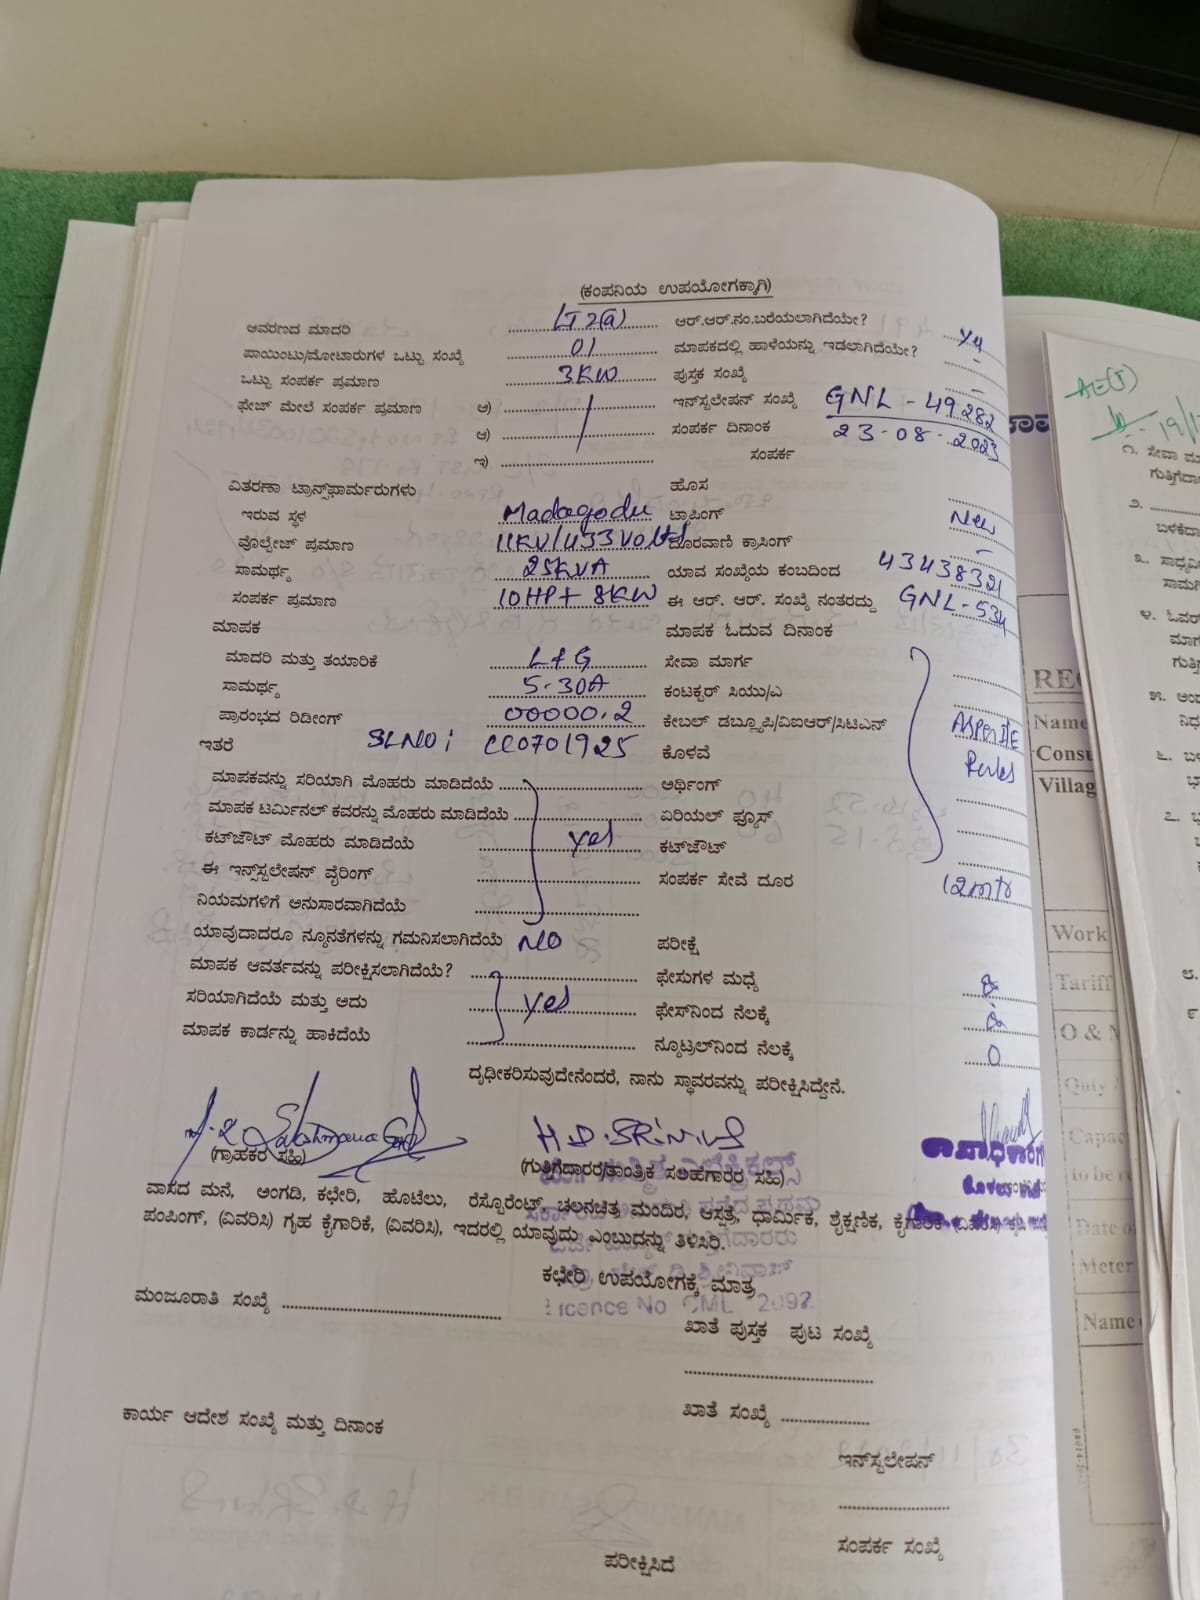 (ಕಂಪನಿಯ ಉಪಯೋಗಕ್ಕಾಗಿ)
ಆವರಣದ ಮಾದರಿ LT 2(a) ಆರ್.ಆರ್.ನಂ.ಬರೆಯಲಾಗಿದೆಯೇ?
ಪಾಯಿಂಟು/ಮೋಟಾರುಗಳ ಒಟ್ಟು ಸಂಖ್ಯೆ 01 ಮಾಪಕದಲ್ಲಿ ಹಾಳೆಯನ್ನು ಇಡಲಾಗಿದೆಯೇ? -
ಒಟ್ಟು ಸಂಪರ್ಕ ಪ್ರಮಾಣ 3KW ಪುಸ್ತಕ ಸಂಖ್ಯೆ -
ಫೇಜ್ ಮೇಲೆ ಸಂಪರ್ಕ ಪ್ರಮಾಣ ಅ) ಇನ್‌ಸ್ಟಲೇಷನ್ ಸಂಖ್ಯೆ GNL - 49282
ಆ) ಸಂಪರ್ಕ ದಿನಾಂಕ 23-08-2023
ಇ) ಸಂಪರ್ಕ
ವಿತರಣಾ ಟ್ರಾನ್ಸ್‌ಫಾರ್ಮರುಗಳು ಹೊಸ
ಇರುವ ಸ್ಥಳ Madagodu ಟ್ಯಾಪಿಂಗ್ New
ವೊಲ್ಟೇಜ್ ಪ್ರಮಾಣ 11KV/433Volts ದೂರವಾಣಿ ಕ್ರಾಸಿಂಗ್ -
ಸಾಮರ್ಥ್ಯ 25KVA ಯಾವ ಸಂಖ್ಯೆಯ ಕಂಬದಿಂದ 43438321
ಸಂಪರ್ಕ ಪ್ರಮಾಣ 10HP+ 8KW ಈ ಆರ್. ಆರ್. ಸಂಖ್ಯೆ ನಂತರದ್ದು GNL-534
ಮಾಪಕ ಮಾಪಕ ಓದುವ ದಿನಾಂಕ
ಮಾದರಿ ಮತ್ತು ತಯಾರಿಕೆ L&G ಸೇವಾ ಮಾರ್ಗ
ಸಾಮರ್ಥ್ಯ 5-30A ಕಂಟಕ್ಟರ್ ಸಿಯು/ಎ
ಪ್ರಾರಂಭದ ರಿಡೀಂಗ್ 00000.2 ಕೇಬಲ್ ಡಬ್ಲ್ಯೂಪಿ/ವಿಐಆರ್/ಸಿಟಿಎಸ್ As per IE
ಇತರೆ SL NO: CC0701925 ಕೊಳವೆ Rules
ಮಾಪಕವನ್ನು ಸರಿಯಾಗಿ ಮೊಹರು ಮಾಡಿದೆಯೆ ಅರ್ಥಿಂಗ್
ಮಾಪಕ ಟರ್ಮಿನಲ್ ಕವರನ್ನು ಮೊಹರು ಮಾಡಿದೆಯೆ ಏರಿಯಲ್ ಫ್ಯೂಸ್
ಕಟ್‌ಔಟ್ ಮೊಹರು ಮಾಡಿದೆಯೆ yes ಕಟ್‌ಔಟ್
ಈ ಇನ್‌ಸ್ಟಲೇಷನ್ ವೈರಿಂಗ್ ಸಂಪರ್ಕ ಸೇವೆ ದೂರ 12mtr
ನಿಯಮಗಳಿಗೆ ಅನುಸಾರವಾಗಿದೆಯೆ
ಯಾವುದಾದರೂ ನ್ಯೂನತೆಗಳನ್ನು ಗಮನಿಸಲಾಗಿದೆಯೆ NO ಪರೀಕ್ಷೆ
ಮಾಪಕ ಆವರ್ತವನ್ನು ಪರೀಕ್ಷಿಸಲಾಗಿದೆಯೆ? ಫೇಸುಗಳ ಮಧ್ಯೆ
ಸರಿಯಾಗಿದೆಯೆ ಮತ್ತು ಅದು yes ಫೇಸ್‌ನಿಂದ ನೆಲಕ್ಕೆ
ಮಾಪಕ ಕಾರ್ಡನ್ನು ಹಾಕಿದೆಯೆ ನ್ಯೂಟ್ರಲ್‌ನಿಂದ ನೆಲಕ್ಕೆ 0
ದೃಢೀಕರಿಸುವುದೇನೆಂದರೆ, ನಾನು ಸ್ಥಾವರವನ್ನು ಪರೀಕ್ಷಿಸಿದ್ದೇನೆ.
(ಗ್ರಾಹಕರ ಸಹಿ) (ಗುತ್ತಿಗೆದಾರರ/ತಾಂತ್ರಿಕ ಸಲಹಗಾರರ ಸಹಿ)
ವಾಸದ ಮನೆ, ಅಂಗಡಿ, ಕಛೇರಿ, ಹೊಟೆಲು, ರೆಸ್ಟೊರೆಂಟ್, ಚಲನಚಿತ್ರ ಮಂದಿರ, ಆಸ್ಪತ್ರೆ, ಧಾರ್ಮಿಕ, ಶೈಕ್ಷಣಿಕ, ಕೈಗಾರಿಕೆ (ವಿವರಿಸಿ)
ಪಂಪಿಂಗ್, (ವಿವರಿಸಿ) ಗೃಹ ಕೈಗಾರಿಕೆ, (ವಿವರಿಸಿ), ಇದರಲ್ಲಿ ಯಾವುದು ಎಂಬುದನ್ನು ತಿಳಿಸಿರಿ.
ಕಛೇರಿ ಉಪಯೋಗಕ್ಕೆ ಮಾತ್ರ
Licence No CML 2092
ಮಂಜೂರಾತಿ ಸಂಖ್ಯೆ
ಖಾತೆ ಪುಸ್ತಕ ಪುಟ ಸಂಖ್ಯೆ
ಕಾರ್ಯ ಆದೇಶ ಸಂಖ್ಯೆ ಮತ್ತು ದಿನಾಂಕ ಖಾತೆ ಸಂಖ್ಯೆ
ಇನ್‌ಸ್ಟಲೇಷನ್
ಸಂಪರ್ಕ ಸಂಖ್ಯೆ
ಪರೀಕ್ಷಿಸಿದೆ
Name
Village
Work
Tariff
Meter
Name